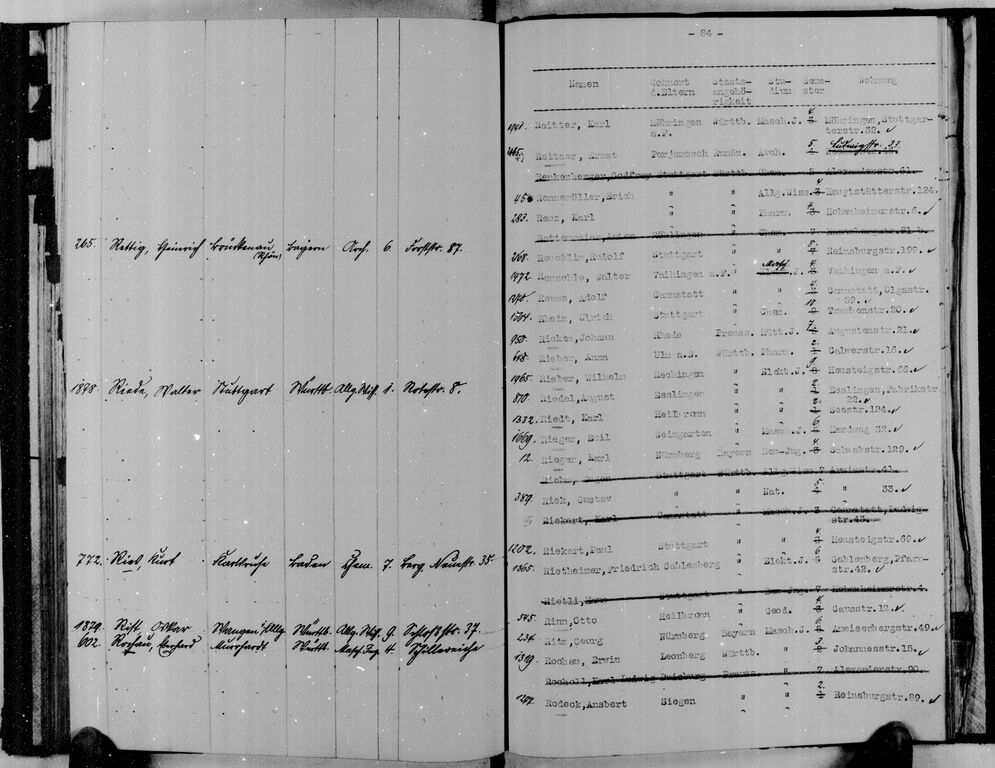 265. Rettig, Heinrich Brückenau Bayern Arch. 6 Forststr. 87.
(Rhön)
1898. Riede, Walter Stuttgart Württb. Allg. Wiss. 1. Rotestr. 8.
772. Ries, Kurt Karlsruhe Baden Chem. 7. Berg, Neuestr. 35.
1829. Rist, Oskar Wangen i/Allg. Württb. Allg. Wiss. 9. Schloßstr. 37.
602. Rochau, Eberhard Murrhardt Württb. Masch. Ing. 4. Schillereiche
- 84 -
Namen Wohnort Staats- Stu- Seme- Wohnung
d.Eltern angehö- dium ster
rigkeit
Reitter, Karl Möhringen Württb. Masch.J. 4. Möhringen, Stuttgar-
a.F. terstr.32.
Reitser, Ernst Porjamosch Rumän. Arch. 5. Ludwigstr. 33.
Renkenberger, Godfrey Stuttgart Württb. Chem. 5 Alexanderstr.61.
45 Rennemüller, Erich " " Allg.Wiss. 4 Hauptstätterstr.124.
283. Renz, Karl " " Pharm. Hohenheimerstr.6.
Chem. 7
268. Reuchlin, Rudolf Stuttgart " " Reinsburgstr.199.
1472 Reuschle, Walter Vaihingen a.F. " Masch.J. 4. Vaihingen a.F.
1270. Reuss, Adolf Cannstatt " " 4. Cannstatt, Olgastr.
39.
1504. Rhein, Ulrich Stuttgart " Chem. 10. Traubenstr.20.
950. Ricken, Johann Rhode Preuss. Hütt.J. 7. Augustenstr.21.
618. Rieber, Anna Ulm a.D. Württb. Pharm. 2. Calwerstr.16.
1965. Rieber, Wilhelm Hechingen " Elekt.J. Neusteigstr.66.
870. Riedel, August Esslingen " " 2. Esslingen, Fabrikstr.
22.
1332. Riedt, Karl Heilbronn " " 2. Seestr.124.
1669. Rieger, Emil Weingarten " Masch.J. 6 Herdweg 32.
12. Rieger, Karl Nürnberg Bayern Bau-Jug. 4. Schwabstr.129.
Stuttgart Württb. Allg.Wiss. 7 41.
389. Riek, Gustav " " Nat. 5. " 33.
Riekert, Karl Cannstatt " Masch.J. 3 Cannstatt, Ludwig-
str.43.
1202. Riekert, Paul Stuttgart " " 4 Neusteigstr.69.
1365. Rietheimer, Friedrich Gablenberg " Elekt.J. 6 Gablenberg, Pfarr-
str.42.
Rietli, Stuttgart " Bau-Jug. 7 Hohenheimerstr.4.
545. Rinn, Otto Heilbronn " Geod. 4 Gausstr.12.
234. Ritz, Georg Nürnberg Bayern Masch.J. 6 Ameisenbergstr.49.
1319. Rochau, Erwin Leonberg Württb. " 3. Johannesstr.15.
Rocholl, Karl Ludwig Duisburg Preuss. " 7 Alexanderstr.90.
1247. Rodeck, Ansbert Siegen " " 2. Reinsburgstr.29.